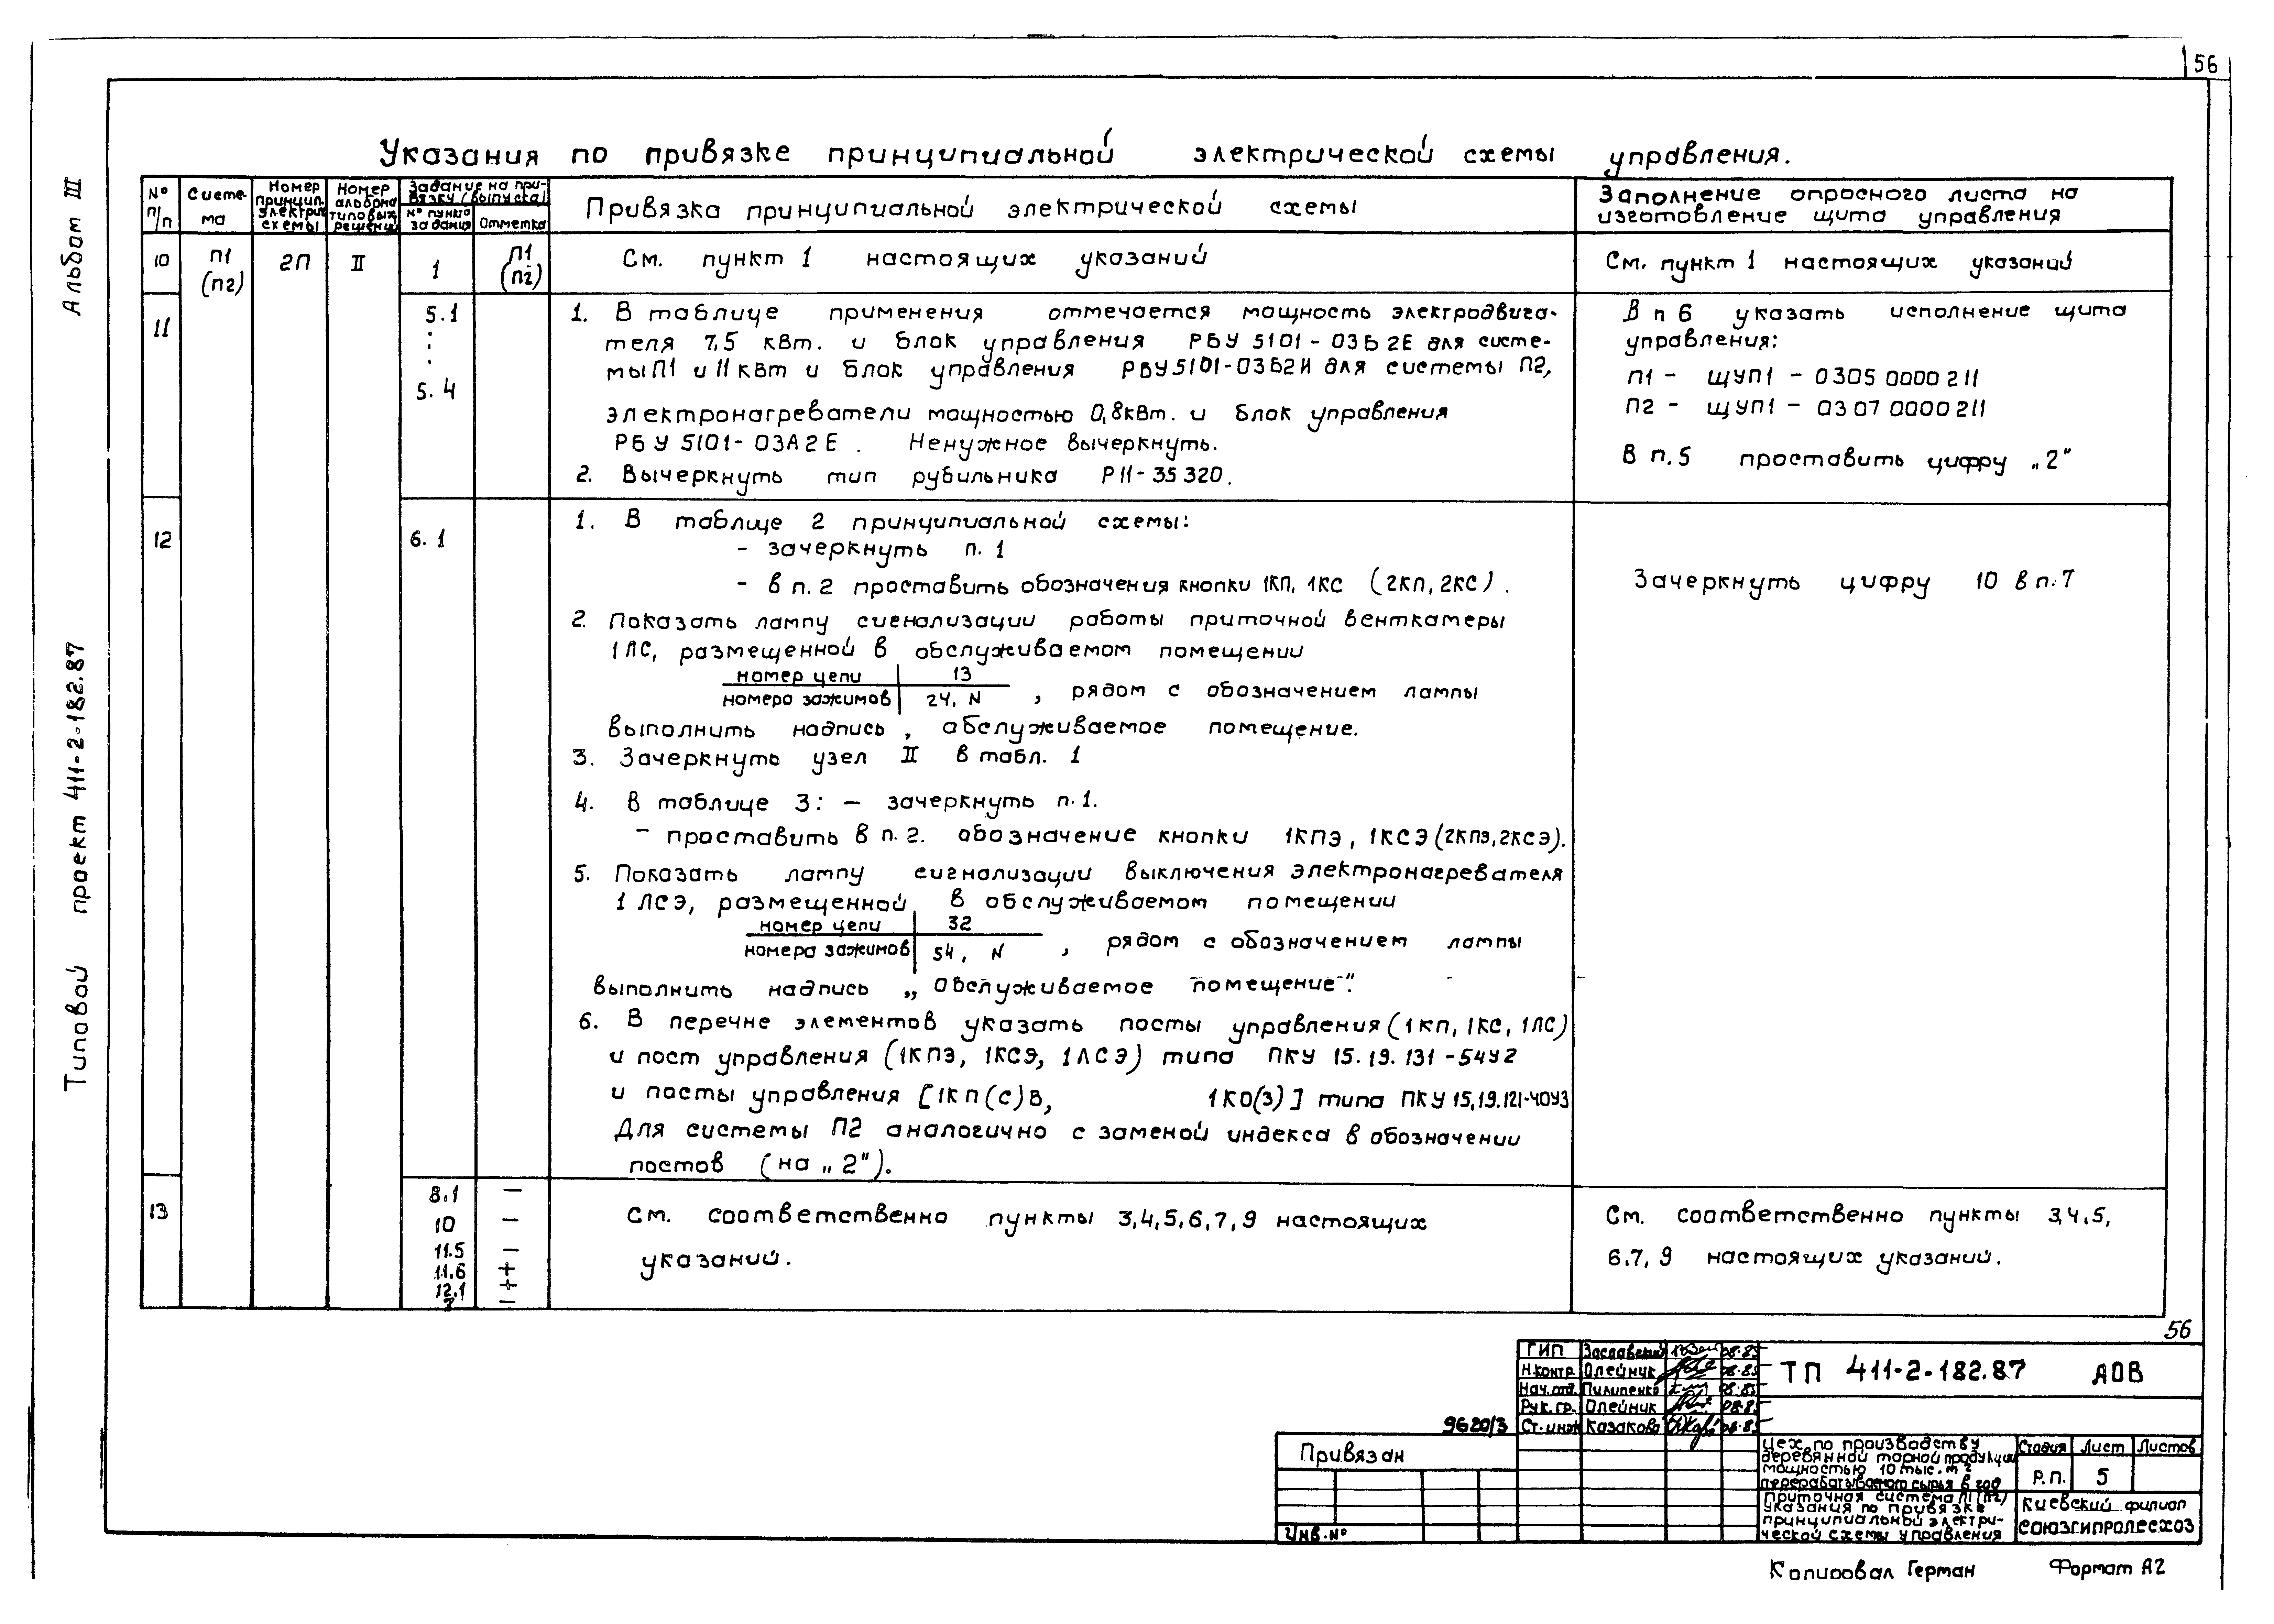 56
Альбом III
Типовой проект 411-2-182.87
Указания по привязке принципиальной электрической схемы управления.
№ п/п
Систе-
ма
Номер
принцип.
электрич.
схемы
Номер
альбома
типовых
решений
Задание на при-
вязку (выпуска)
№ пункта
задания
Отметка
Привязка принципиальной электрической схемы
Заполнение опросного листа на
изготовление щита управления
10
П1
(П2)
2П
II
1
П1
(П2)
См. пункт 1 настоящих указаний
См. пункт 1 настоящих указаний
11
5.1
5.4
1. В таблице применения отмечается мощность электродвига-
теля 7,5 кВт. и блок управления РБУ 5101-03Б2Е для систе-
мы П1 и 11 кВт и блок управления РБУ5101-03Б2И для системы П2,
электронагреватели мощностью 0,8кВт. и блок управления
РБУ 5101-03А2Е. Ненужное вычеркнуть.
2. Вычеркнуть тип рубильника Р11-35320.
В п 6 указать исполнение щита
управления:
П1 - ЩУП1 - 0305 0000 211
П2 - ЩУП1 - 0307 0000211
В п.5 проставить цифру „2"
12
6.1
1. В таблице 2 принципиальной схемы:
- зачеркнуть п. 1
- в п.2 проставить обозначения кнопки 1КП, 1КС (2КП, 2КС).
2. Показать лампу сигнализации работы приточной венткамеры
1ЛС, размещенной в обслуживаемом помещении
номер цепи 13
номера зажимов 24, N , рядом с обозначением лампы
выполнить надпись, обслуживаемое помещение.
3. Зачеркнуть узел II в табл. 1
4. В таблице 3: — зачеркнуть п.1.
- проставить в п.2. обозначение кнопки 1КПЭ, 1КСЭ(2КПЭ,2КСЭ).
5. Показать лампу сигнализации выключения электронагревателя
1ЛСЭ, размещенной в обслуживаемом помещении
номер цепи 32
номера зажимов 54, N , рядом с обозначением лампы
выполнить надпись „обслуживаемое помещение".
6. В перечне элементов указать посты управления (1КП, 1КС, 1ЛС)
и пост управления (1КПЭ, 1КСЭ, 1ЛСЭ) типа ПКУ 15.19.131-54У2
и посты управления [1КП(С)В, 1КО(З)] типа ПКУ 15.19.121-40У3
Для системы П2 аналогично с заменой индекса в обозначении
постов (на „2").
Зачеркнуть цифру 10 в п.7
13
8.1 —
10 —
11.5 —
11.6 +
12.1 +
7 —
См. соответственно пункты 3,4,5,6,7,9 настоящих
указаний.
См. соответственно пункты 3,4,5,
6.7, 9 настоящих указаний.
56
9620/3
ГИП Заславский 08.85
Н.контр Олейник 08.85
Нач.отд. Пилипенко 08.85
Рук.гр. Олейник 08.85
Ст.инж Казакова 08.85
ТП 411-2-182.87 АОВ
Привязан
Инв.№
Цех по производству
деревянной тарной продукции
мощностью 10 тыс. м³
перерабатываемого сырья в год
Приточная система П1(П2)
Указания по привязке
принципиальной электри-
ческой схемы управления
Стадия Лист Листов
Р.П. 5
Киевский филиал
СОЮЗГИПРОЛЕСХОЗ
Копировал Герман Формат А2